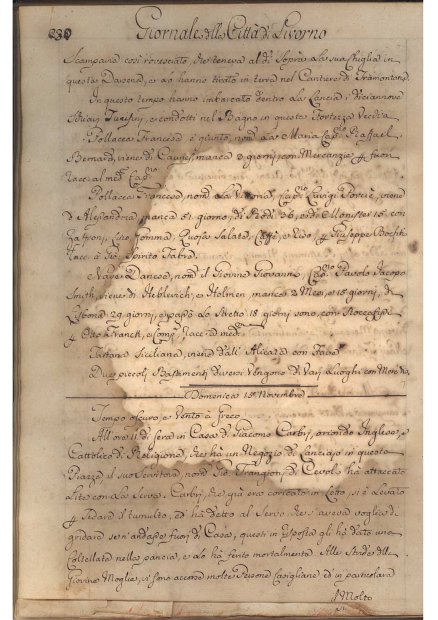 230 Giornale della Città di Livorno
Scampavia così rovesciata, che teneva al di sopra la sua chiglia in
questa Darsena, e lo hanno tirato in terra nel Cantiere di
In questo tempo hanno imbarcato dentro la Lancia i diciannove
Schiavi Tunesini, e condotti nel Bagno in questa Fortezza Vecchia
Pollacca Francese è giunta, nom. la Maria Cap.no Rafael
Bernard, viene di manca 2 giorni, con Mercanzie
racc. al med. Cap.no
Pollacca Francese nom. la Cap.no Luigi viene
d'Alessandria manca 51 giorno, di Rodi 26, e di 15 con
Lino, Gomma, Quoja Salate, Caffè, e Riso, Giuseppe
racc. a Gio. Spirito
Nave Danese, nom. il Giovanne, Cap.no Paolo Jacopo
Smith, viene di e manca 2 Mesi, e 15 giorni, di
Lisbona 29 giorni, e passò lo Stretto 18 giorni sono, con
Otto Franck, e Comp. racc. ad med.
Tartana Siciliana, viene dall' Alicata con Fave
Due piccoli Bastimenti diversi vengono di Varj Luoghi con
Domenica 15 Novembre
Tempo oscuro e Vento è Greco
All' ore 11 di sera in Casa di Giacomo Carbri, oriondo Inglese, e
Cattolico di Religione, che ha un Negozio di in questa
Piazza, il suo Servitore, nom. Gio. di ha attaccato
Lite con la Serva. Carbri, che già era coricato in Letto, si è Levato
il tumulto, ed ha detto al Servo che s'aveva voglia di
gridare se n'andasse fuori di Casa, questi in risposta gli ha dato una
Coltellata nella pancia, e lo ha ferito mortalmente. Alle Strida della
Giovine Moglie, vi sono accorse molte Persone Casigliane ed in particolare
Molto